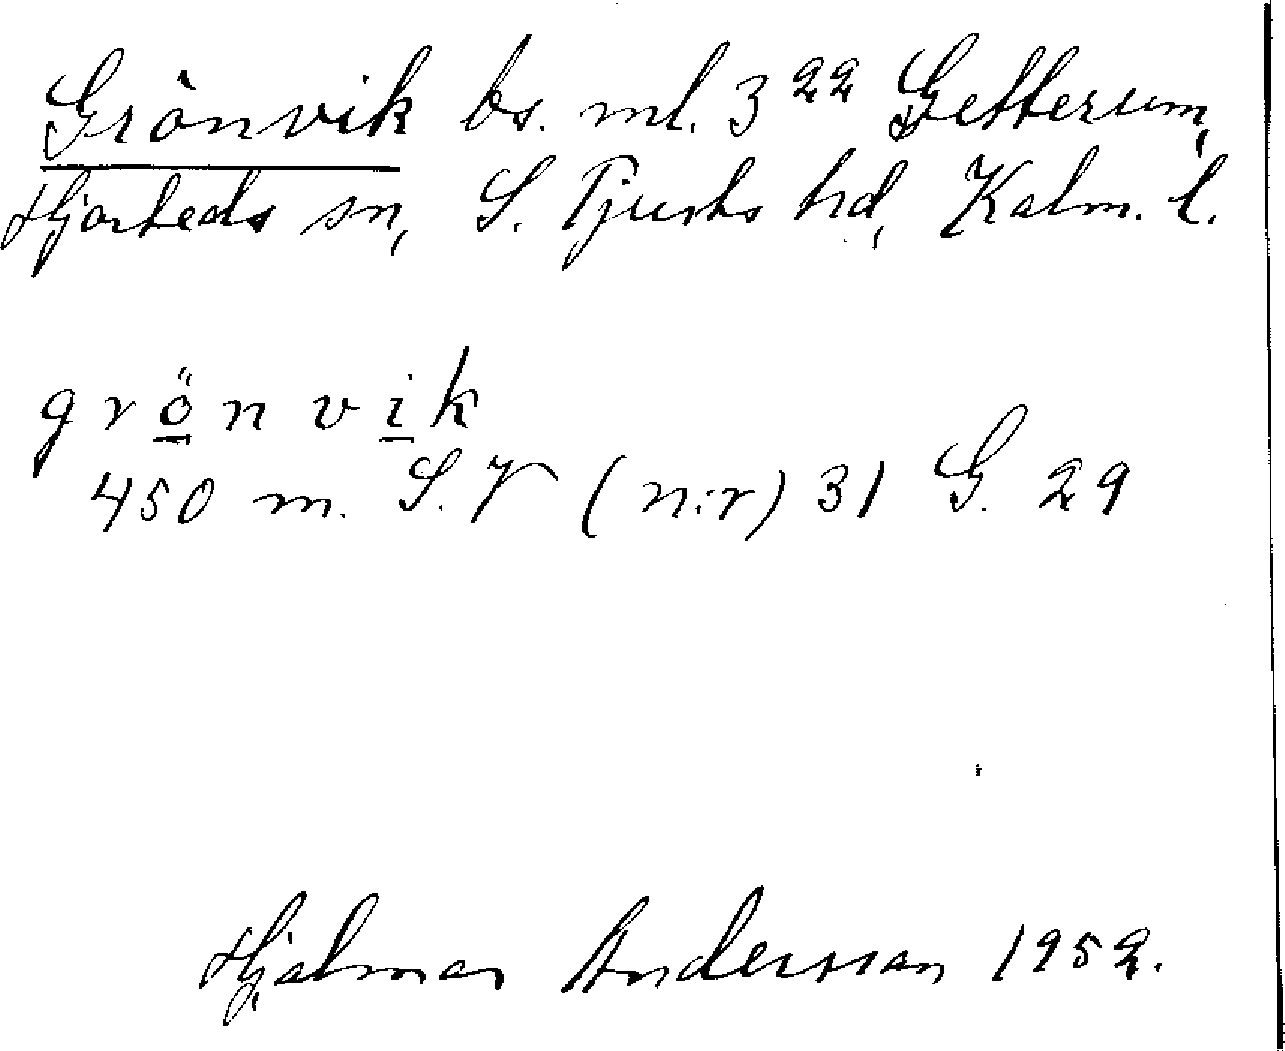 Grönvik bs. ml. 3²² Getterum,
Hjorteds sn, S. Tjusts hd, Kalm. l.
grönvik
450 m. S.V (n:r) 31 G. 29
Hjalmar Andersson 1952.